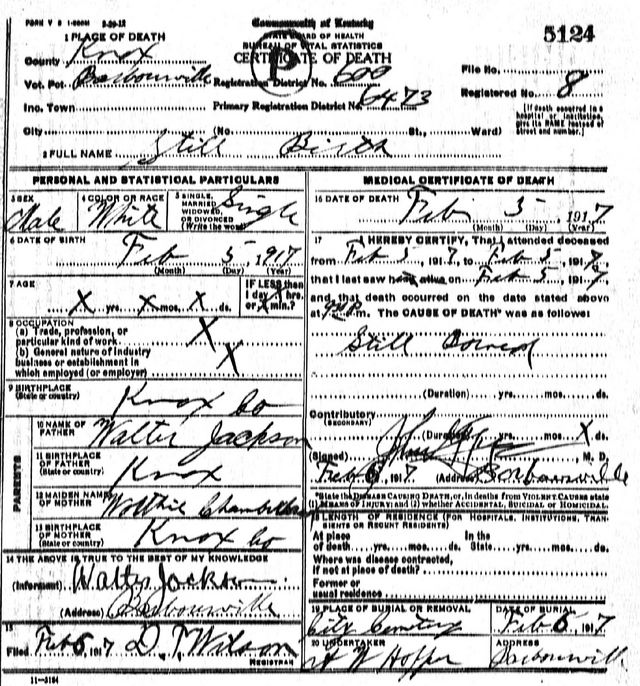 FORM V S 1-500M 3-20-12
Commonwealth of Kentucky
STATE BOARD OF HEALTH
BUREAU OF VITAL STATISTICS
CERTIFICATE OF DEATH
5124
P
1 PLACE OF DEATH
County Knox
Vot. Pct. Barbourville Registration District No. 600
File No.
Inc. Town Primary Registration District No. 6473
Registered No. 8
City (No. St., Ward)
[If death occurred in a hospital or institution, give its NAME instead of street and number.]
2 FULL NAME Still Birth
PERSONAL AND STATISTICAL PARTICULARS
3 SEX Male
4 COLOR OR RACE White
5 SINGLE, MARRIED, WIDOWED, OR DIVORCED (Write the word) Single
6 DATE OF BIRTH Feb 5, 1917
(Month) (Day) (Year)
7 AGE X yrs. X mos. X ds.
IF LESS than 1 day X hrs. or X min.?
8 OCCUPATION
(a) Trade, profession, or particular kind of work X
(b) General nature of industry business or establishment in which employed (or employer) X
9 BIRTHPLACE (State or country) Knox Co
PARENTS
10 NAME OF FATHER Walter Jackson
11 BIRTHPLACE OF FATHER (State or country) Knox
12 MAIDEN NAME OF MOTHER
13 BIRTHPLACE OF MOTHER (State or country) Knox Co
14 THE ABOVE IS TRUE TO THE BEST OF MY KNOWLEDGE
(Informant) Walter Jackson
(Address) Barbourville
15
Filed Feb 6, 1917 D. T. Wilson
REGISTRAR
11-3184
MEDICAL CERTIFICATE OF DEATH
16 DATE OF DEATH Feb 5, 1917
(Month) (Day) (Year)
17 I HEREBY CERTIFY, That I attended deceased
from Feb 5, 1917, to Feb 5, 1917
that I last saw h alive on Feb 5, 1917
and that death occurred on the date stated above
at m. The CAUSE OF DEATH* was as follows:
Still Borned
(Duration) yrs. mos. ds.
Contributory
(SECONDARY)
(Duration) yrs. mos. X ds.
(Signed) M. D.
Feb 6, 1917 (Address) Barbourville
*State the DISEASE CAUSING DEATH, or, in deaths from VIOLENT CAUSES state
(1) MEANS OF INJURY; and (2) whether ACCIDENTAL, SUICIDAL or HOMICIDAL.
18 LENGTH OF RESIDENCE (FOR HOSPITALS, INSTITUTIONS, TRANSIENTS OR RECENT RESIDENTS)
At place of death yrs. mos. ds. In the State yrs. mos. ds.
Where was disease contracted,
if not at place of death?
Former or
usual residence
19 PLACE OF BURIAL OR REMOVAL City Cemetery
DATE OF BURIAL Feb 6, 1917
20 UNDERTAKER A W Hopper
ADDRESS Barbourville